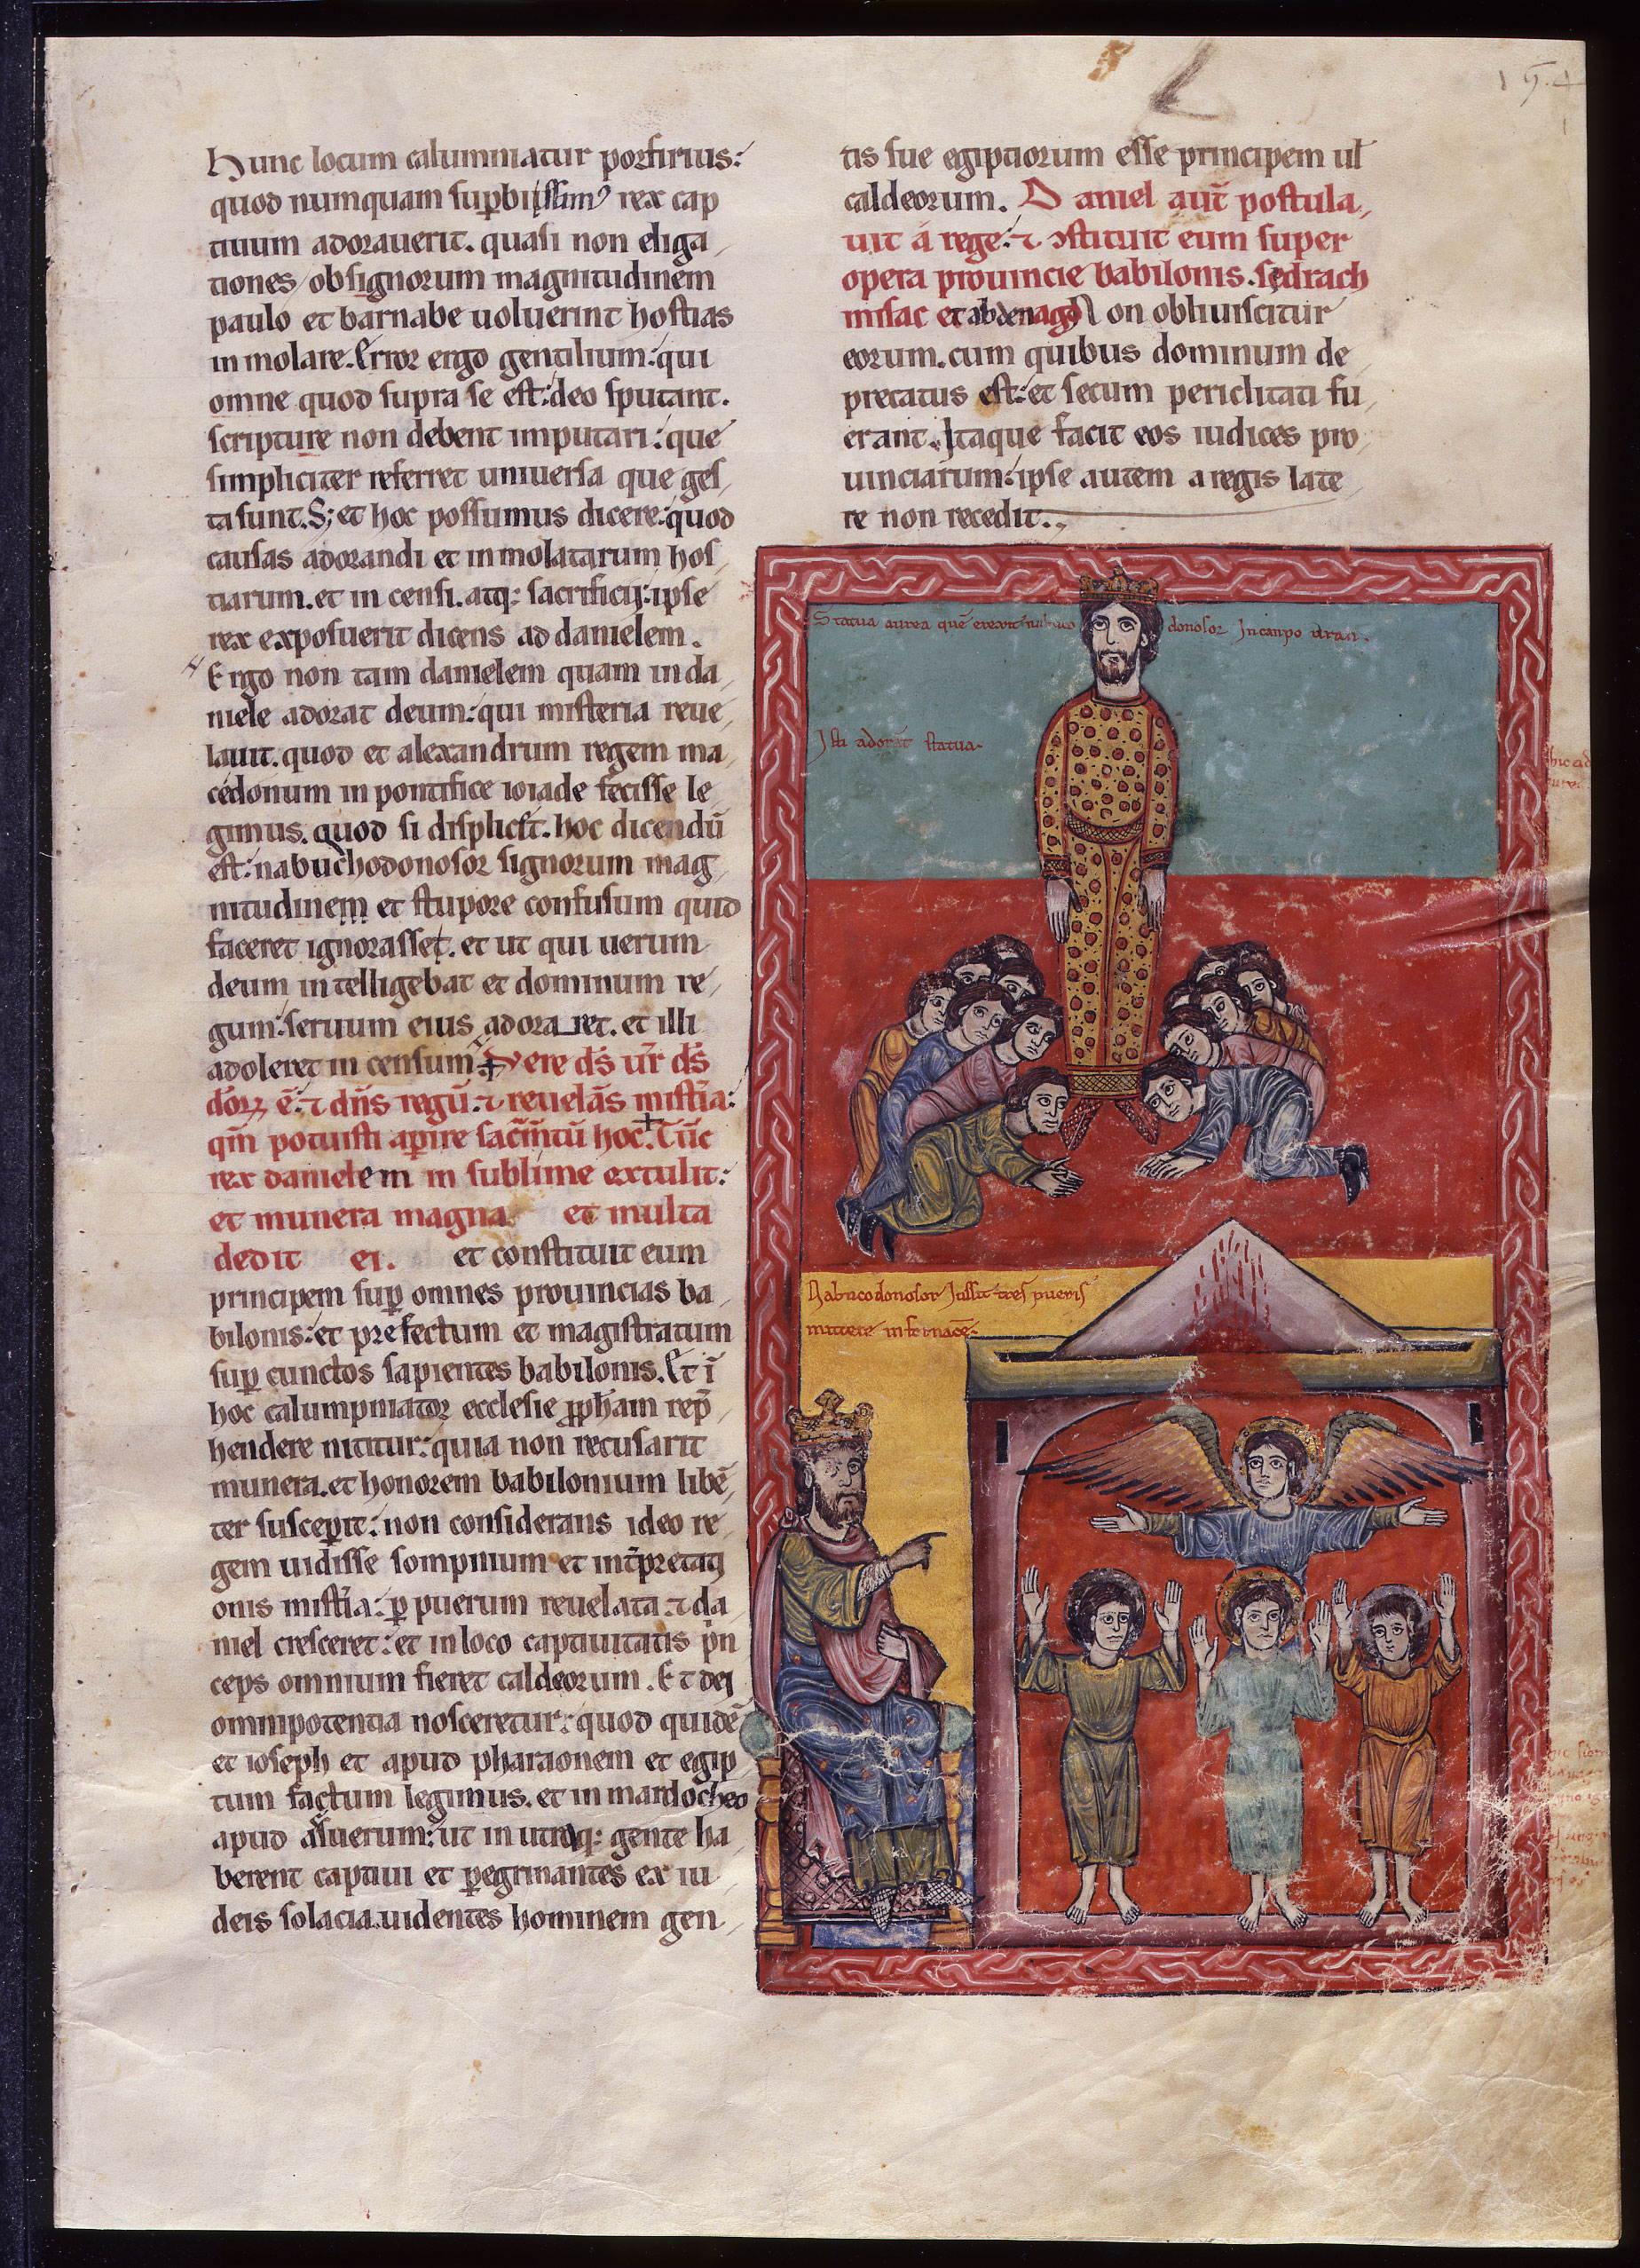 Hunc locum calumniatur porfirius:
quod numquam suꝑbissimꝰ rex cap
tiuum adorauerit. quasi non eliga
tiones ob signorum magnitudinem
paulo et barnabe uoluerint hostias
in molare. Error ergo gentilium: qui
omne quod supra se est: deo sputant.
scripture non debent imputari: que
simpliciter referret uniuersa que ges
ta sunt. S; et hoc possumus dicere: quod
causas adorandi et in molatarum hos
tiarum. et in censi. atq: sacrificij: ipse
rex exposuerit dicens ad danielem.
Ergo non tam danielem quam in da
niele adorat deum: qui misteria reue
lauit. quod et alexandrum regem ma
cedonum in pontifice ioiade fecisse le
gimus. quod si displicet. hoc dicendū
est: nabuchodonosor signorum mag
nitudinem et stupore confusum quid
faceret ignorasset. et ut qui uerum
deum intelligebat et dominum re
gum: seruum eius adoraret. et illi
adoleret in censum. Vere ds̄ ur̄ ds̄
dōꝝ ē: ⁊ dn̄s regū: ⁊ reuelās mist̄ia:
qm̄ potuisti aꝑire sac̄m̄tū hoc. Tūc
rex danielem in sublime extulit:
et munera magna et multa
dedit ei. et constituit eum
principem suꝑ omnes prouincias ba
bilonis: et prefectum et magistratum
suꝑ cunctos sapientes babilonis. Et ī
hoc calumpniator ecclesie ꝓph̄am rep̄
hendere nititur: quia non recusarit
munera. et honorem babilonium libē
ter susceꝑit: non considerans ideo re
gem uidisse sompnium et int̄pretati
onis mist̄ia: ꝑ puerum reuelata: ⁊ da
niel cresceret: et in loco captiuitatis p̄n
ceps omnium fieret caldeorum. Et dei
omnipotentia nosceretur: quod quidē
et ioseph et apud pharaonem et egip
tum factum legimus. et in mardocheo
apud asuerum: ut in utraq: gente ha
berent captiui et ꝑegrinantes ex iu
deis solacia. uidentes hominem gen
tis sue egiptiorum esse principem ul̄
caldeorum. Daniel aut̄ postula
uit a rege: ⁊ ↄstituit eum super
opera prouincie babilonis. sedrach
misac et abdenago Non obliuiscitur
eorum. cum quibus dominum de
precatus est: et secum periclitati fu
erant. Itaque facit eos iudices pro
uinciarum: ipse autem a regis late
re non recedit.
Statua aurea quē erexit nabuco donosor In canpo duran.
Isti adorāt statua.
Nabucodonosor Iussit tres pueris
mittere in fornacē.
hic ad